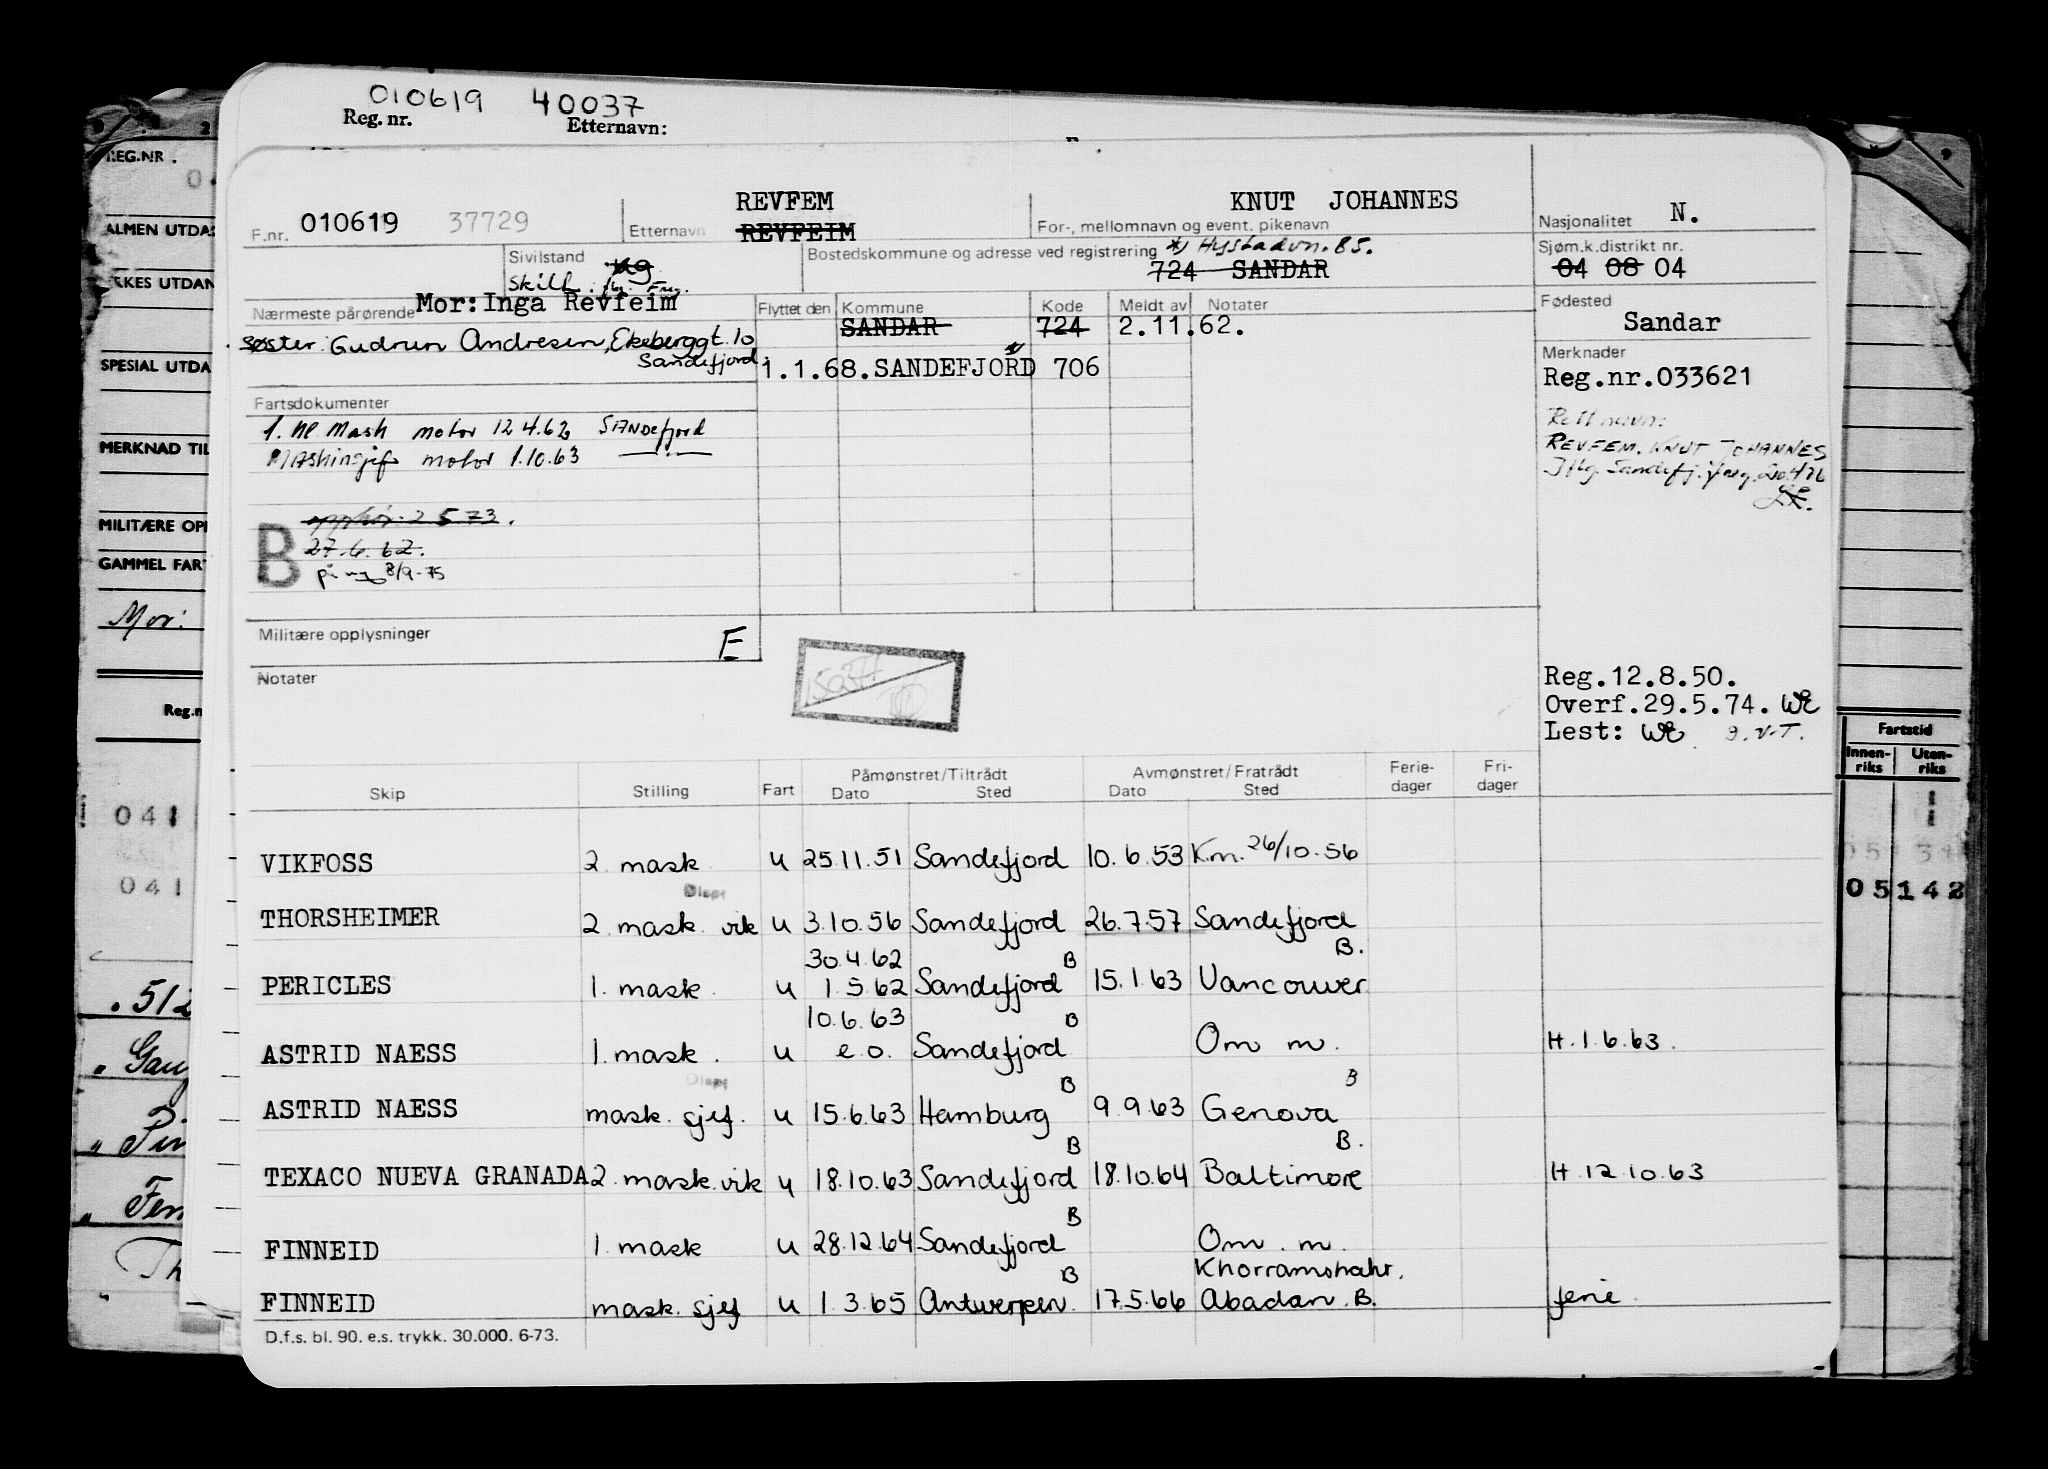 010619 40037
Reg. nr. Etternavn:
REG.NR.
ALMEN UTDA
KKES UTDAN
SPESIAL UTDA
MERKNAD TIL
MILITÆRE OP
GAMMEL FAR
Mor:
Reg.n
041
041
. 512
REVFEM KNUT JOHANNES
F.nr. 010619 37729 Etternavn REVFEIM For-, mellomnavn og event. pikenavn Nasjonalitet N.
Sivilstand Ug Bostedskommune og adresse ved registrering *) Hystadvn. 85. Sjøm.k.distrikt nr.
Skilt. 724 SANDAR 04 08 04
Nærmeste pårørende Mor: Inga Revfeim Flyttet den Kommune Kode Meldt av Notater Fødested
SANDAR 724 2.11.62. Sandar
søster: Gudrun Andresen, Ekeberggt. 10
Sandefjord 1.1.68. SANDEFJORD 706 Merknader
Reg.nr.033621
Fartsdokumenter
1. kl mask motor 12 4.62 SANDefjord
MAskinsjef motor 1.10.63 —"—
Rett navn:
REVFEM, KNUT JOHANNES
B opphør 2 5 73.
27.6.62.
på ny 8/9-75
Militære opplysninger E
Notater
Reg.12.8.50.
Overf.29.5.74.
Lest:
Fartstid
Innen-riks Uten-riks
05142
Skip Stilling Fart Påmønstret/Tiltrådt Avmønstret/Fratrådt Ferie-dager Fri-dager
Dato Sted Dato Sted
VIKFOSS 2. mask u 25.11.51 Sandefjord 10.6.53 K.m. 26/10.56
THORSHEIMER 2. mask. vik u 3.10.56 Sandefjord 26.7.57 Sandefjord
30.4.62 B B.
PERICLES 1. mask. u 1.5.62 Sandefjord 15.1.63 Vancouver
10.6.63 B
ASTRID NAESS 1. mask. u e.o. Sandefjord Om m. H.1.6.63.
B B
ASTRID NAESS mask. sjef. u 15.6.63 Hamburg 9.9.63 Genova
B B.
TEXACO NUEVA GRANADA 2. mask. vik u 18.10.63 Sandefjord 18.10.64 Baltimore H.12.10.63
B
FINNEID 1. mask u 28.12.64 Sandefjord Om. m.
B Khorramshahr.
FINNEID mask. sjef u 1.3.65 Antwerpen. 17.5.66 Abadan. B. ferie.
D.f.s. bl. 90. e.s. trykk. 30.000. 6-73.